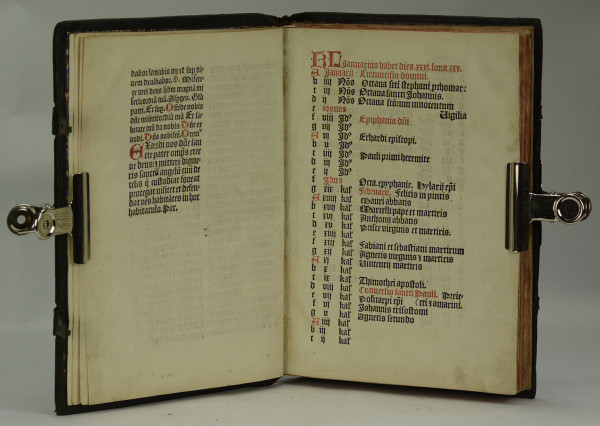 dabor lauabis me et sup ni-
uem dealbabor. Ps Misere-
re mei deus scdm magnā mi
sericordiā tuā. Aspges. Glia
patri. Et sup. Ostēde nobis
dn̄e misericordiā tuā. Et sa-
lutare tuū da nobis
Exaudi nos dn̄e san
cte pater om̄ps eter
ne deus: et mittere digne-
ris sanctū angelū tuū de
celis q̄ custodiat foueat
protegat visitet et defen-
dat oēs habitātes in hoc
habitaculo. Per.
KL Januarius habet dies .xxxi. luna .xxx.
A Januarij Circumcisio domini.
b iiij No͞s Octaua scti stephani prothomar:
c iij No͞s Octaua sancti Johannis.
d ij No͞s Octaua scōrum innocentum
e Nonas Vigilia
f viij Jd9 Epiphania dn̄i
g vij Jd9
A vi Jd9 Erhardi episcopi.
b v Jd9
c iiij Jd9 Pauli primi heremite
d iij Jd9
e ij Jd9
f Idus Octa. epyphanie. Hylarij ep̄i
g xix kal' Februarij. Felicis in pincis
A xviij kal' Mauri abbatis
b xvij kal' Marcelli pape et martiris
c xvi kal' Anthonij abbatis
d xv kal' Prisce virginis et martiris.
e xiiij kal'
f xiij kal' Fabiani et sebastiani martirum
g xij kal' Agnetis virginis et martiris
A xi kal' Vincentij martiris
b x kal'
c ix kal' Thimothei apostoli.
d viij kal' Conuersio sancti Pauli. Preie-
e vij kal' Policarpi ep̄i (cti et amarini.
f vi kal' Johannis crisostomi
g v kal' Agnetis secundo
A iiij kal'
b iij kal'
c ij kal'